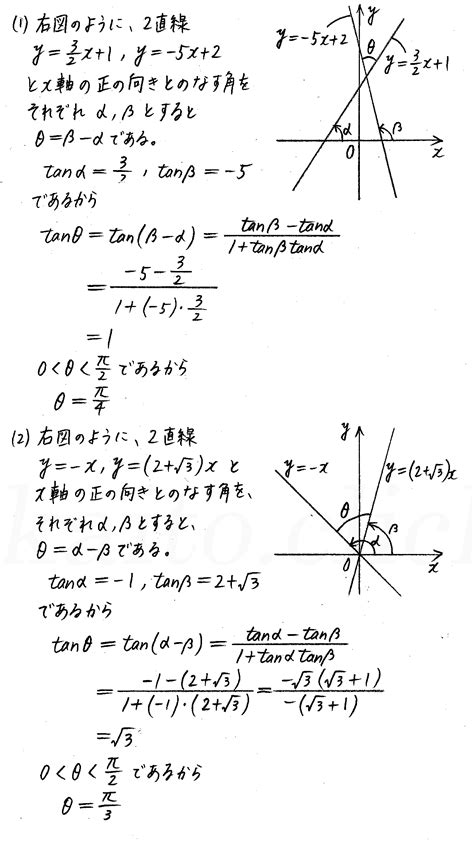 (1) 右図のように、2直線
y=3/2x+1, y=-5x+2
とx軸の正の向きとのなす角を
それぞれ α, βとすると
θ=β-αである。
tanα=3/2, tanβ=-5
であるから
tanθ=tan(β-α)=(tanβ-tanα)/(1+tanβtanα)
=(-5-3/2)/(1+(-5)・3/2)
=1
0<θ<π/2 であるから
θ=π/4
y
y=-5x+2
θ
y=3/2x+1
α
β
O
x
(2) 右図のように、2直線
y=-x, y=(2+√3)x と
x軸の正の向きとのなす角を、
それぞれα, βとすると、
θ=α-βである。
tanα=-1, tanβ=2+√3
であるから
tanθ=tan(α-β)=(tanα-tanβ)/(1+tanαtanβ)
=(-1-(2+√3))/(1+(-1)・(2+√3))=(-√3(√3+1))/(-(√3+1))
=√3
0<θ<π/2 であるから
θ=π/3
y
y=-x
y=(2+√3)x
θ
β
α
O
x